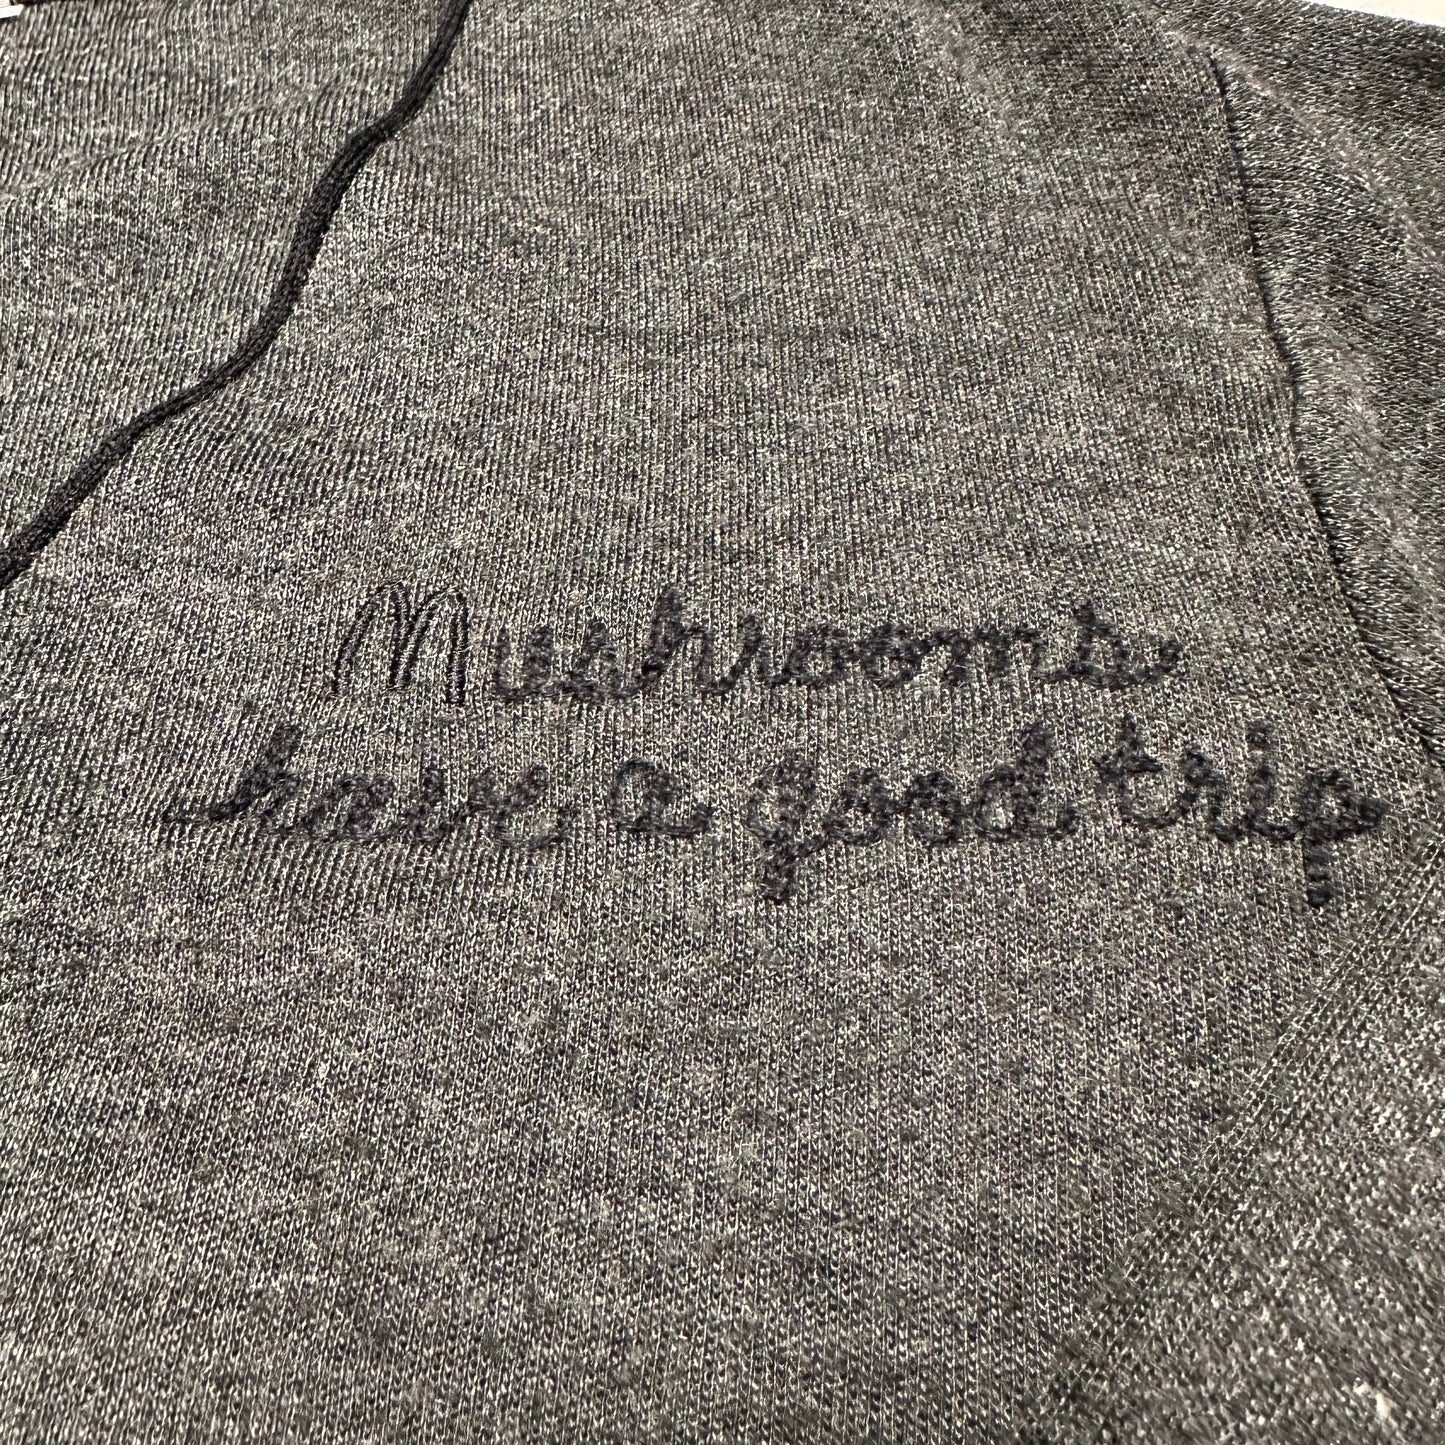 Mushrooms
have a good trip